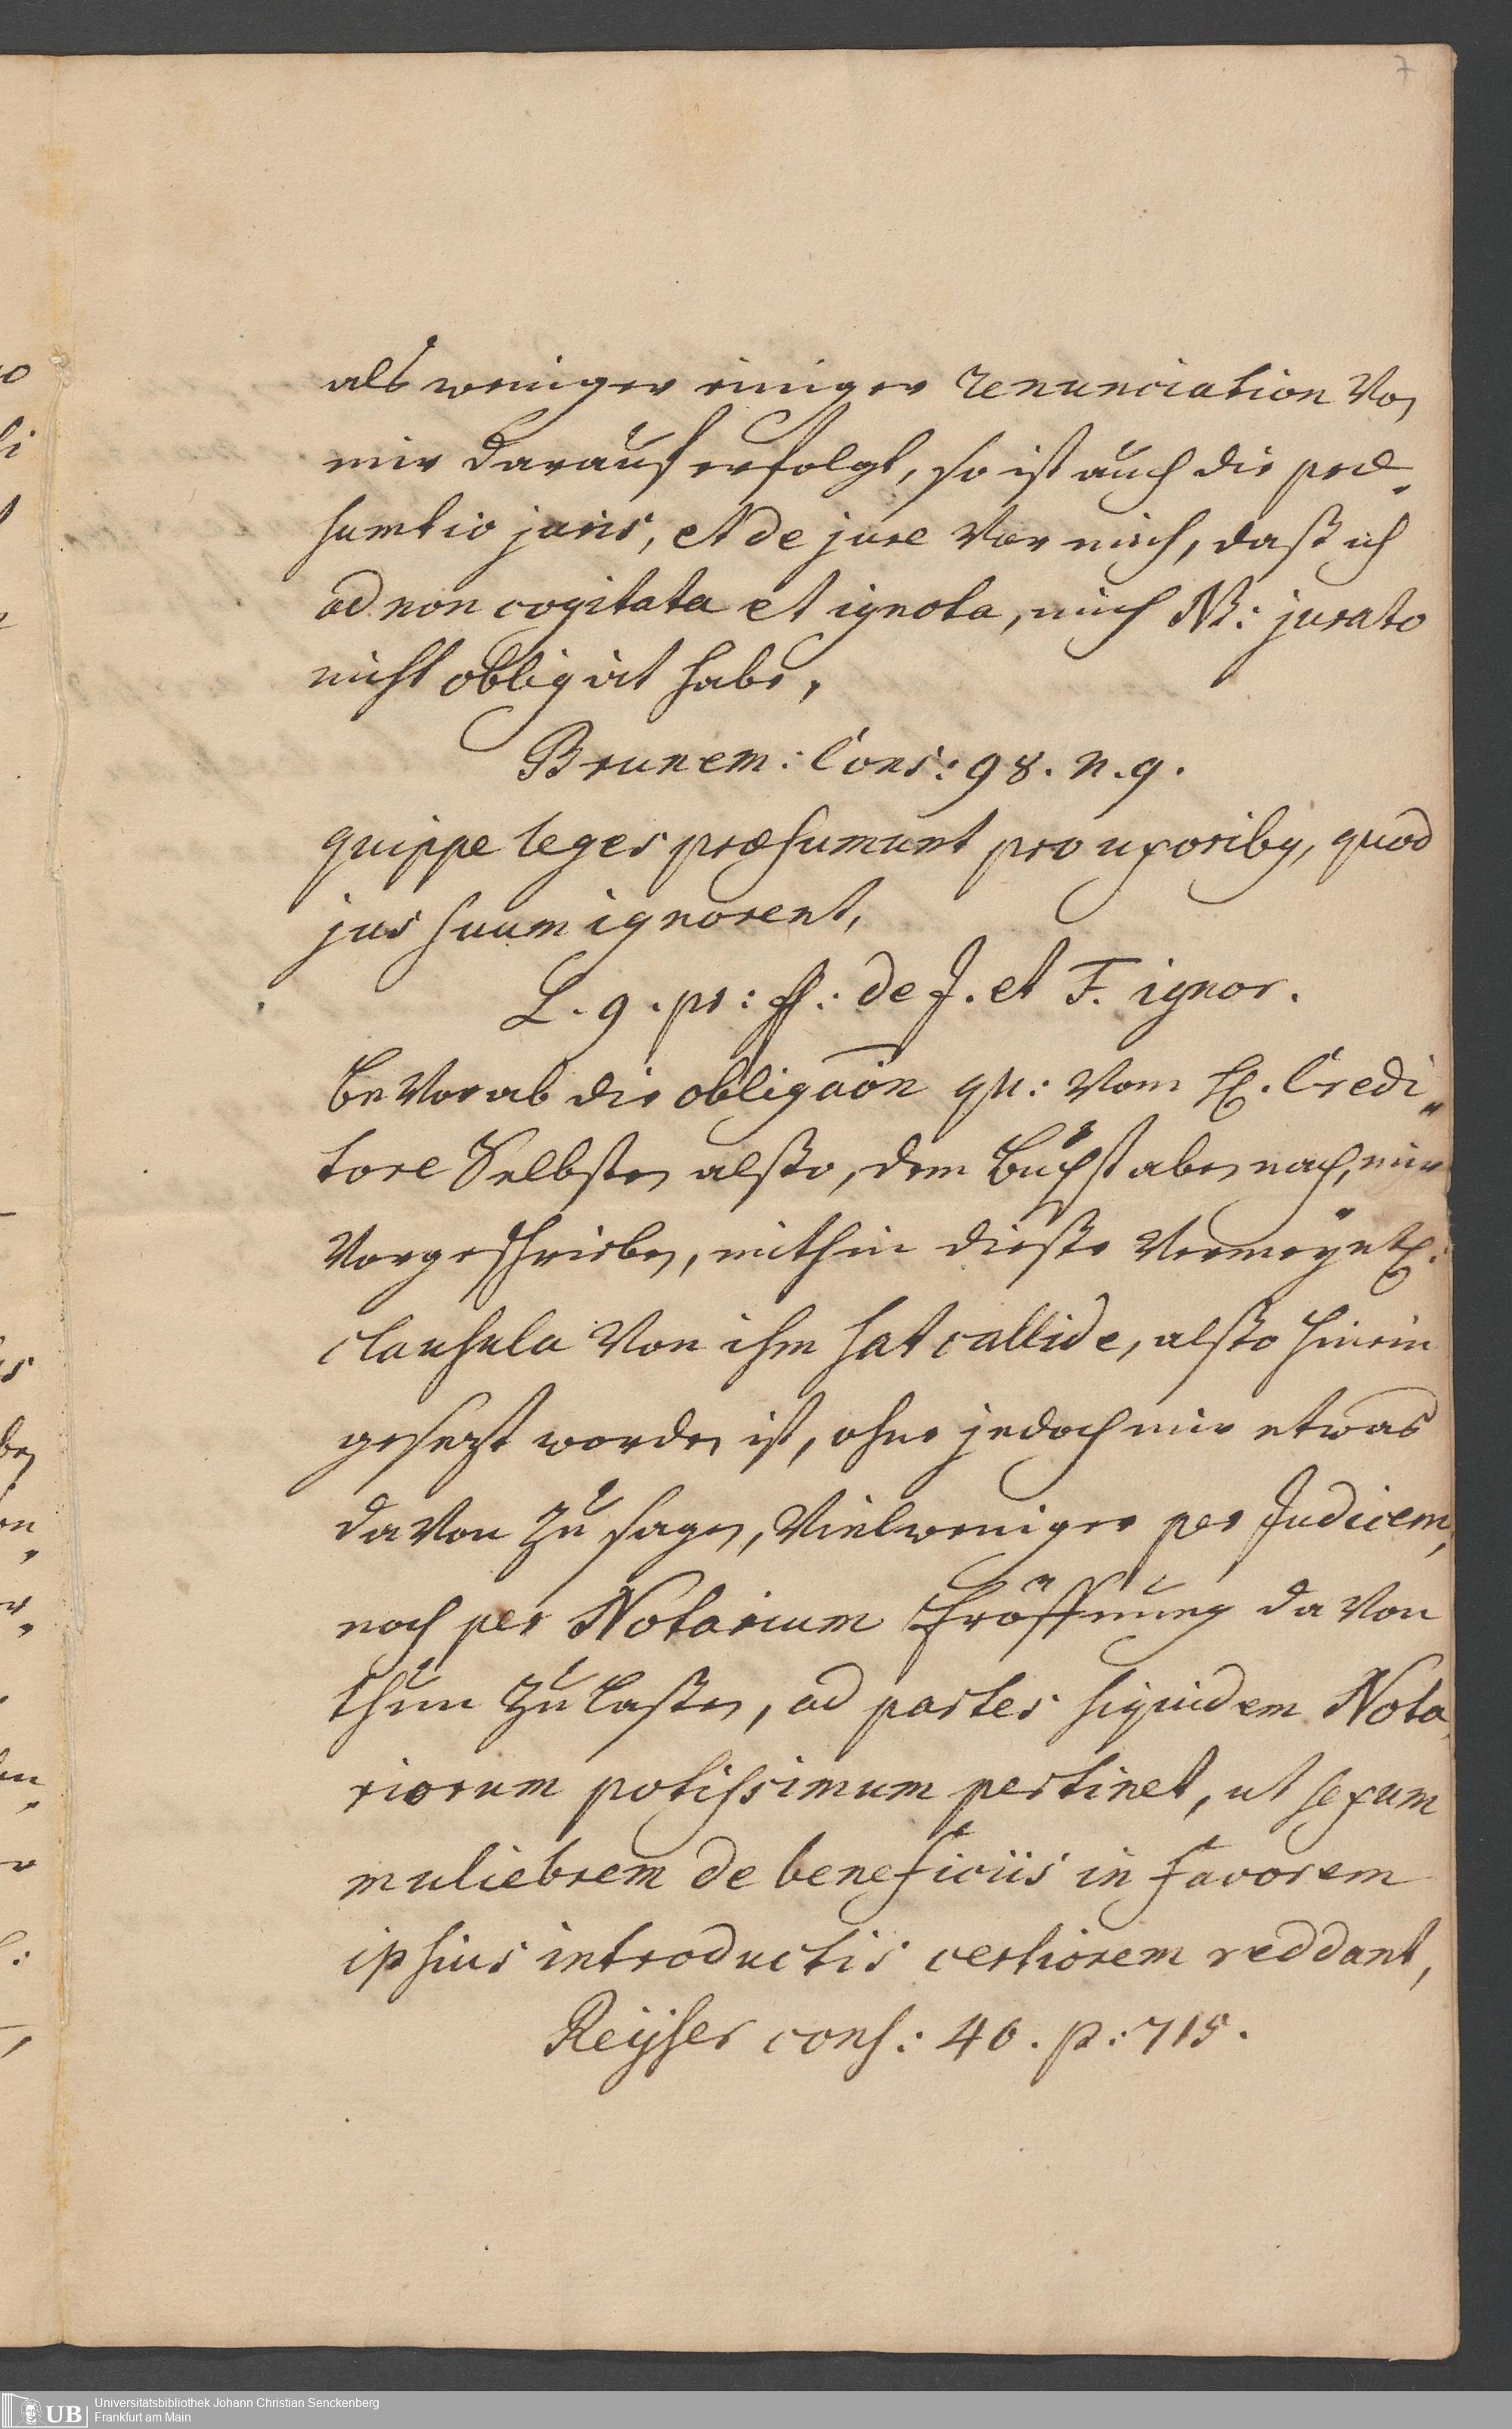 7
als weniger einiger renunciation von
mir darauf erfolgt, so ist auch die præ-
sumtio juris, et de jure vor mich, daß ich
ad non cogitata et ignota, mich NB: jurato
nicht obligirt habe,
Brunem: Cons: 98. n. 9.
quippe leges præsumunt pro uxoribus, quod
jus suum ignorent,
L. 9. pr: ff: de J. et F. ignor.
bevorab die obligaōn qu: vom H. Credi-
tore Selbsten alßo, dem buchstaben nach, mir
vorgeschrieben, mithin dieße vermeÿntl.
clausula von ihm hat callide, alßo hinein
gesezt worden ist, ohne jedoch mir etwas
davon zu sagen, vielweniger per Judicem,
noch per Notarium Eröffnung davon
thun zu laßen, ad partes siquidem Nota-
riorum potissimum pertinet, ut sexum
muliebrem de beneficiis in favorem
ipsius introductis certiorem reddant,
Reÿser cons: 40. p: 715.
UB
Universitätsbibliothek Johann Christian Senckenberg
Frankfurt am Main